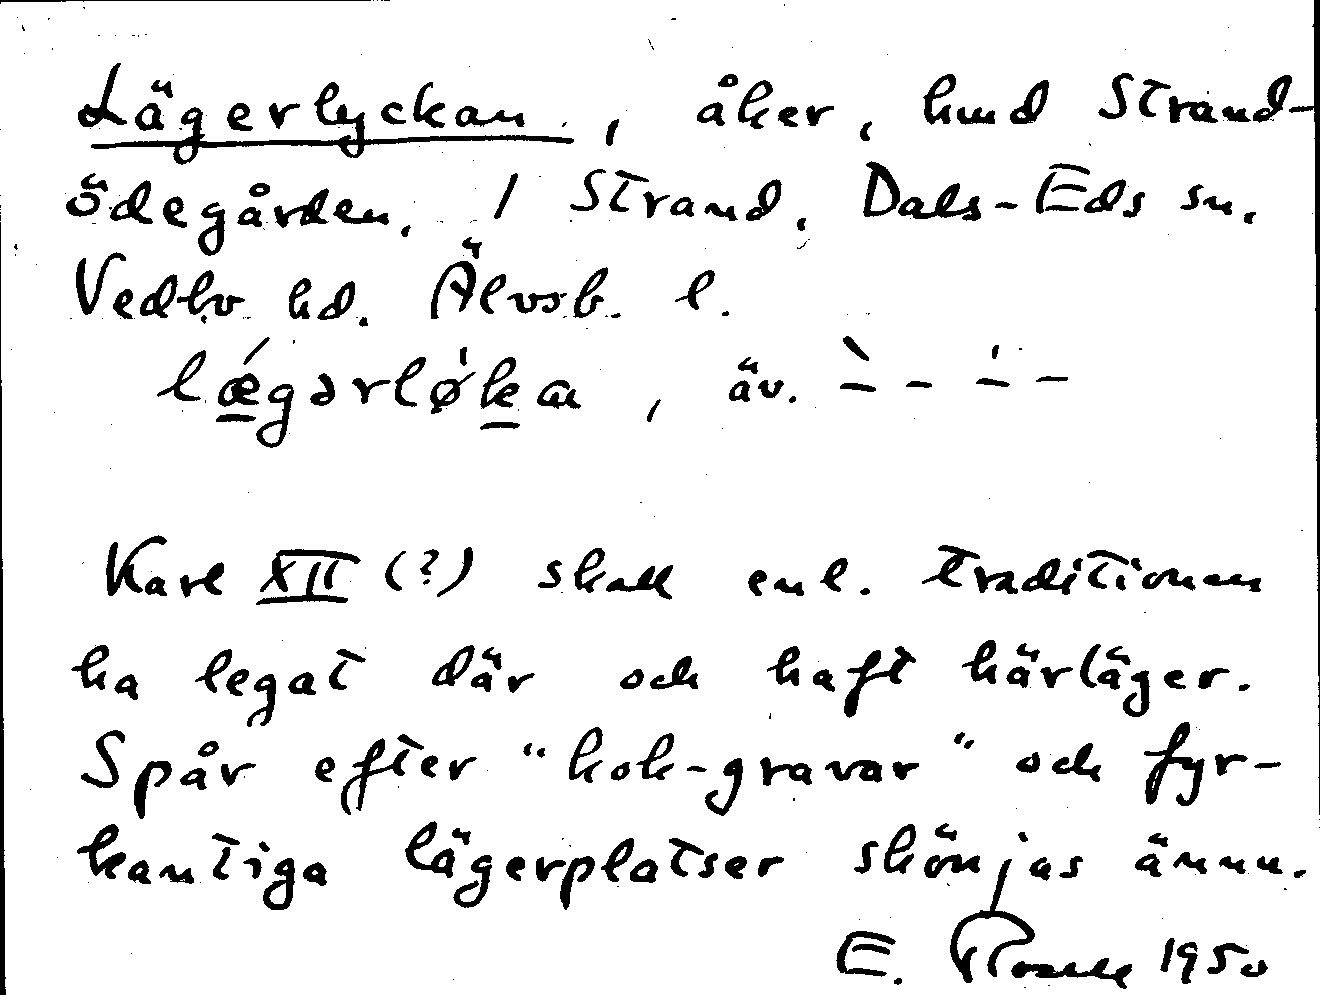 Lägerlyckan, åker, hmd Strand-
ödegården, 1 Strand, Dals-Eds sn.
Vedbo hd. Älvsb. l.
lǽgərlø̍kan, äv. –̀ – –̍ –
Karl XII (?) skall enl. traditionen
ha legat där och haft härläger.
Spår efter "kok-gravar" och fyr-
kantiga lägerplatser skönjas ännu.
E. 1950